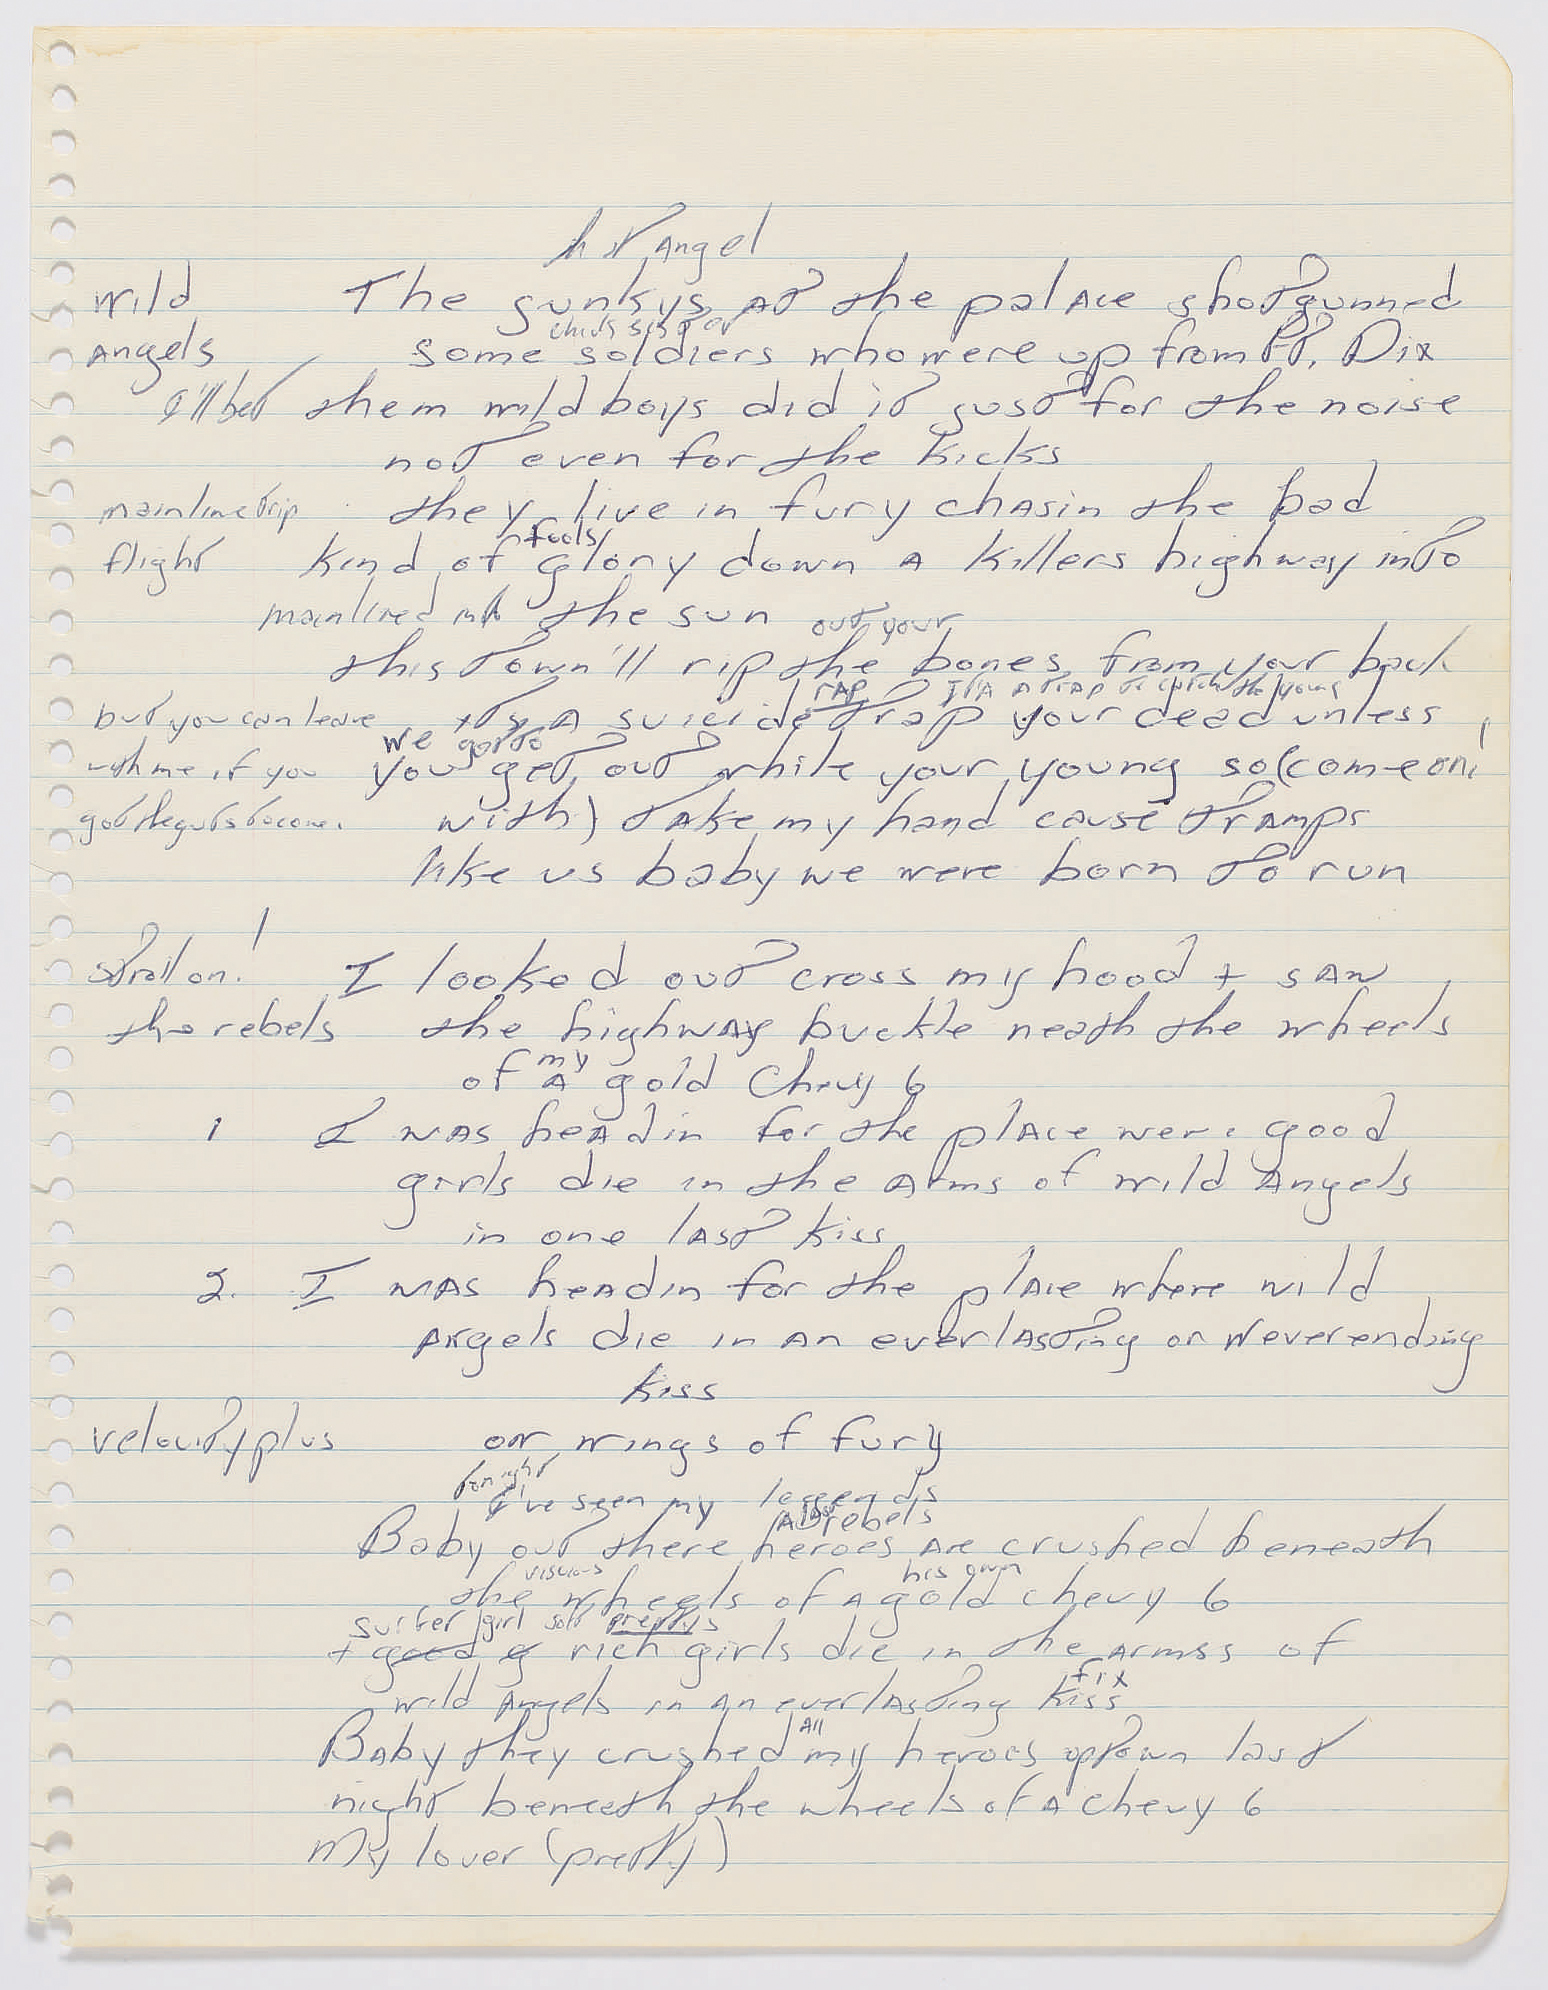 hot Angel
Wild The junkys at the palace shotgunned
Angels some soldiers who were up from Ft. Dix
I'll bet them wild boys did it just for the noise
not even for the kicks
mainline trip they live in fury chasin the bad
fools
flight kind of glory down a killers highway into
mainlined into the sun
out your
this town'll rip the bones from your back
rap It's a trap to catch the young
but you can leave its a suicide trap your dead unless
we gotta
with me if you you get out while your young so (come on
got the guts to come. with) take my hand cause tramps
like us baby we were born to run
stroll on! I looked out cross my hood + saw
the rebels the highway buckle neath the wheels
my
of a gold Chevy 6
1 I was headin for the place were good
girls die in the arms of wild Angels
in one last kiss
2. I was headin for the place where wild
Angels die in an everlasting or Neverending
kiss
velocity plus on wings of fury
tonight
I've seen my legends
rebels
Baby out there heroes are crushed beneath
visions his own
the wheels of a gold chevy 6
surfer girl pretty's
+ good g rich girls die in the armss of
fix
wild Angels in an everlasting kiss
All
Baby they crushed my heroes uptown last
night beneath the wheels of a Chevy 6
My lover (pretty)